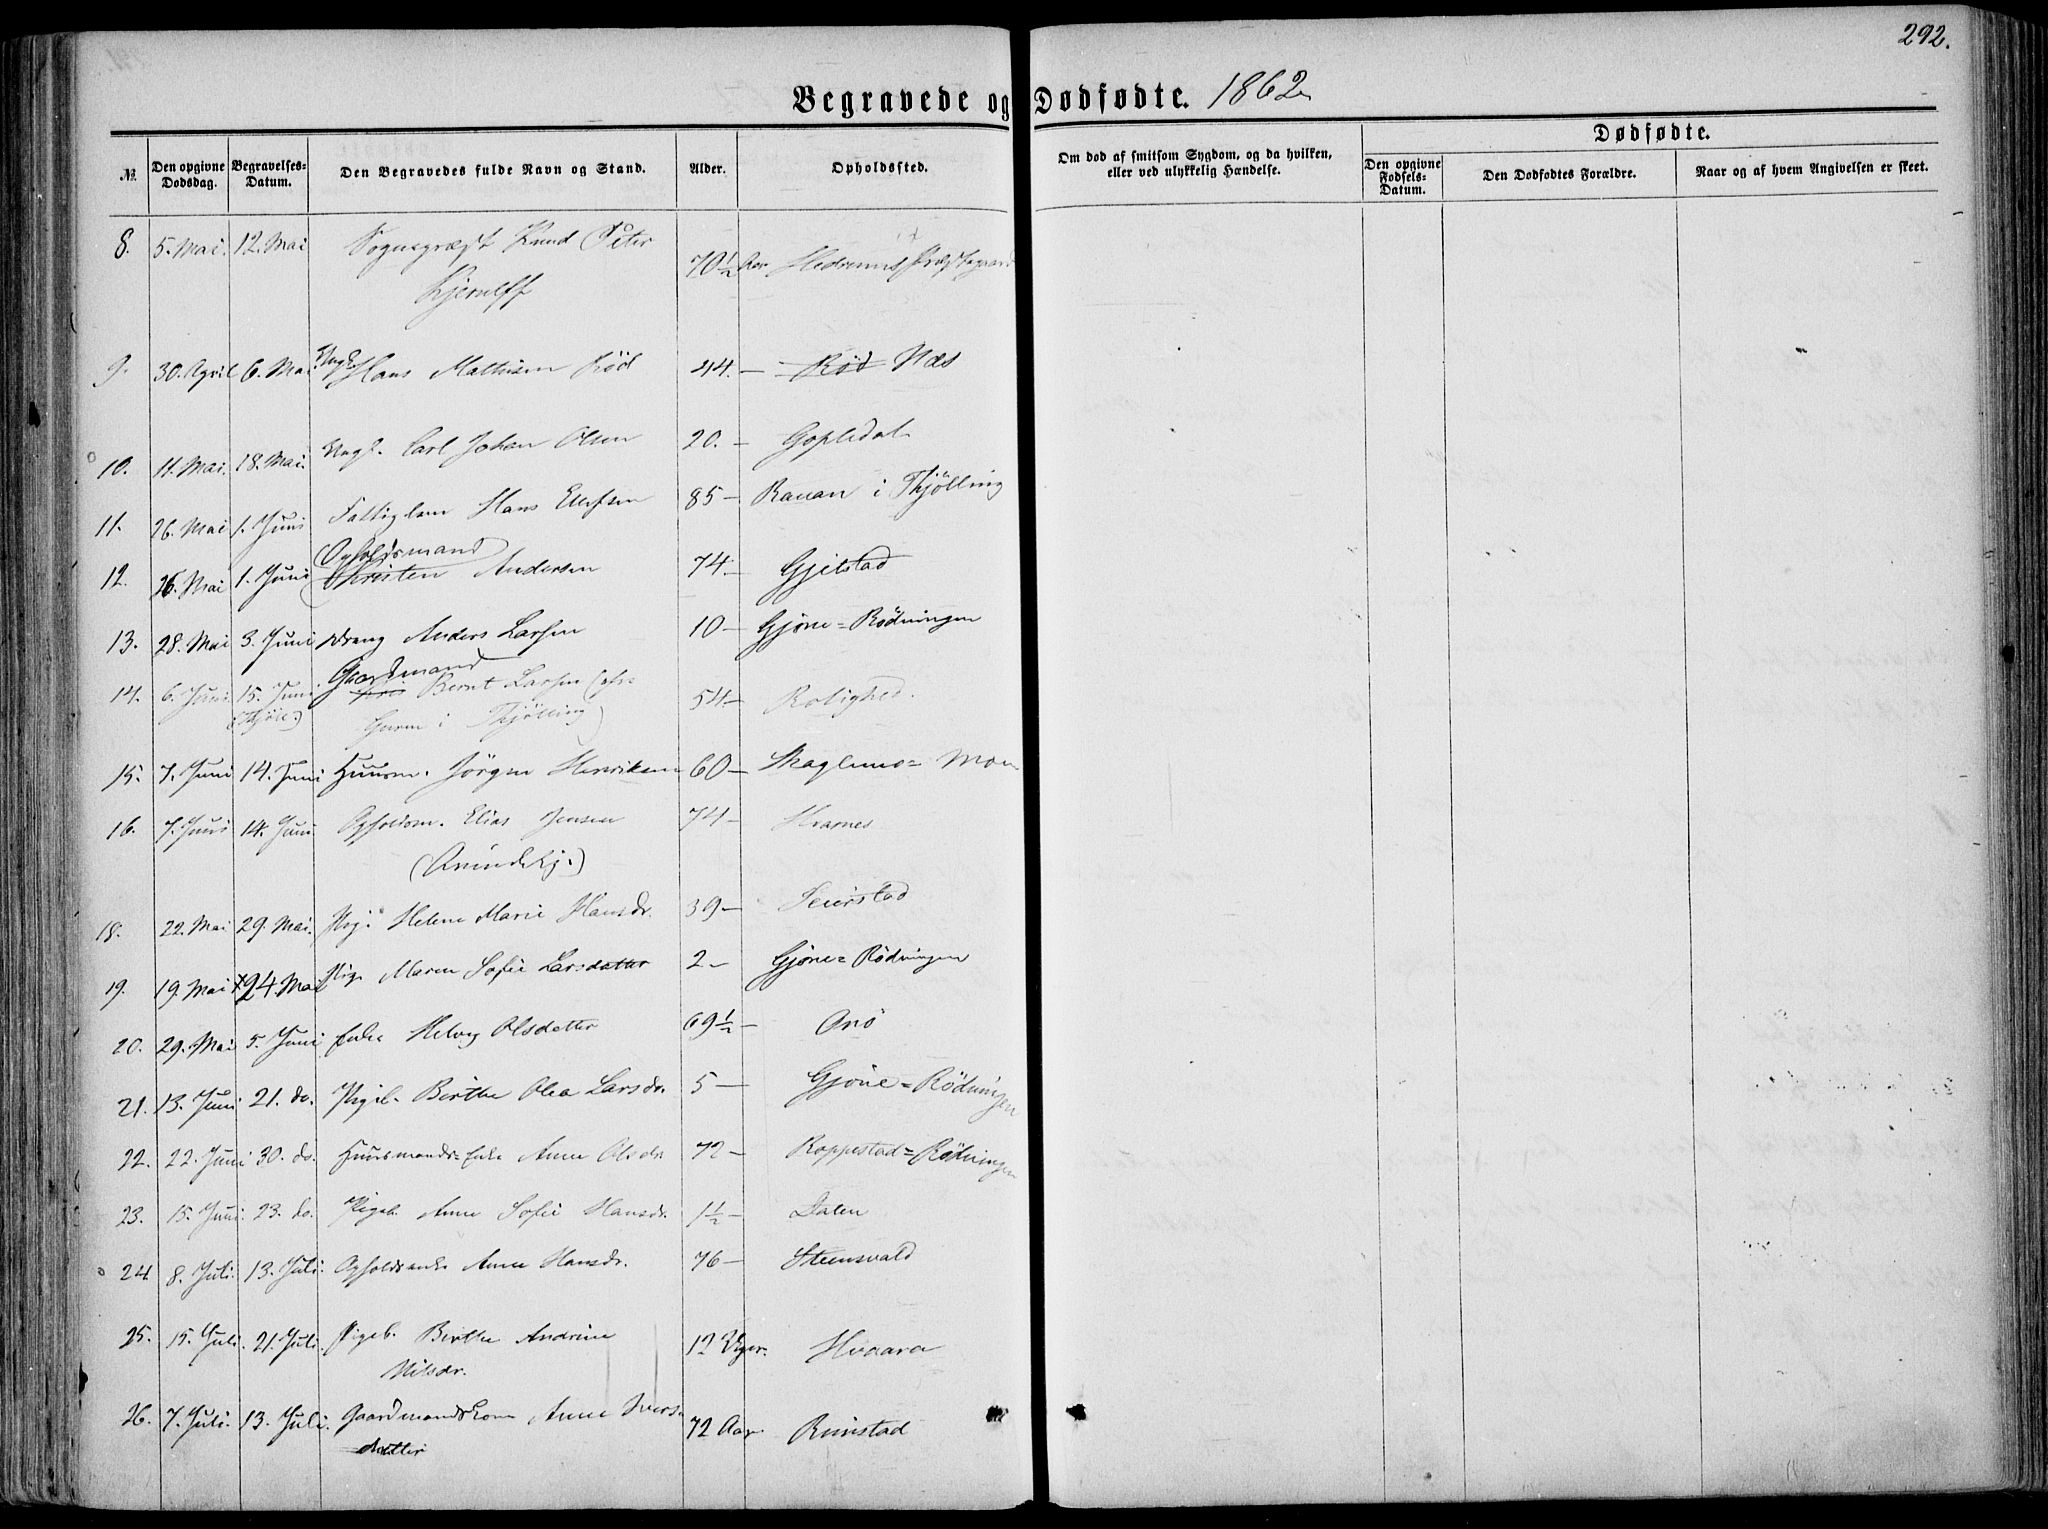 292.
Begravede og Dødfødte. 1862
№
Den opgivne Dödsdag.
Begravelses-Datum.
Den Begravedes fulde Navn og Stand.
Alder.
Opholdssted.
Om död af smitsom Sygdom, og da hvilken, eller ved ulykkelig Hændelse.
Dødfødte.
Den opgivne Fødsels-Datum.
Den Dødfødtes Forældre.
Naar og af hvem Angivelsen er skeet.
8. 5. Mai. 12. Mai Sognepræst Knud Peter
Kjerulff 70½ Aar Hedrums Præstegaard
9. 30. April 6. Mai Ungk. Hans Mathisen Röd 44. — Röd Næs
10. 11. Mai. 18. Mai. Ungk. Carl Johan Olsen 20. — Gopledal
11. 26. Mai 1. Juni Fattiglem Hans Ellefsen 85 — Rauan i Thjölling
Opholdsmand
12. 26. Mai 1. Juni Christen Andersen 74. — Gjelstad
13. 28. Mai 3. Juni Dreng Anders Larsen 10 — Gjöne = Rödningen
Gaardmand
14. 6. Juni 15. Juni Bernt Larsen 54 — Rolighed.
(Thjöl.) i Thjölling)
15. 7. Juni 14. Juni Huusm. Jörgen Henriksen 60 — Skaglumo = Moen
16. 7. Juni 14. Juni Opholdsm. Elias Jensen 74 — Hvarnes
18. 22. Mai 29. Mai. Pig. Helene Marie Hansdr. 39 — Seierstad
19. 19. Mai 24. Mai Pige Maren Sofie Larsdatter 2 — Gjöne = Rödningen
20. 29. Mai 5. Juni Enke Helvig Olsdatter 69½ — Anö
21. 13. Juni 21. do. Pigeb. Birthe Olea Larsdr. 5 — Gjöne = Rödningen
22. 22. Juni 30. do. Huusmands-Enke Anne Olsdr. 72 — Roppestad = Rödningen
23. 15. Juni. 23. do. Pigeb. Anne Sofie Hansdr. 1½ — Dalen
24 8. Juli. 13. Juli. Opholdsenke Anne Hansdr. 76 — Steensvald
25. 15. Juli. 21. Juli. Pigeb. Birthe Andrine
Nilsdr. 12 Uger. Hvaara
26. 7. Juli. 13. Juli. Gaardmandskone Anne Ivers-
datter 72 Aar Rimstad